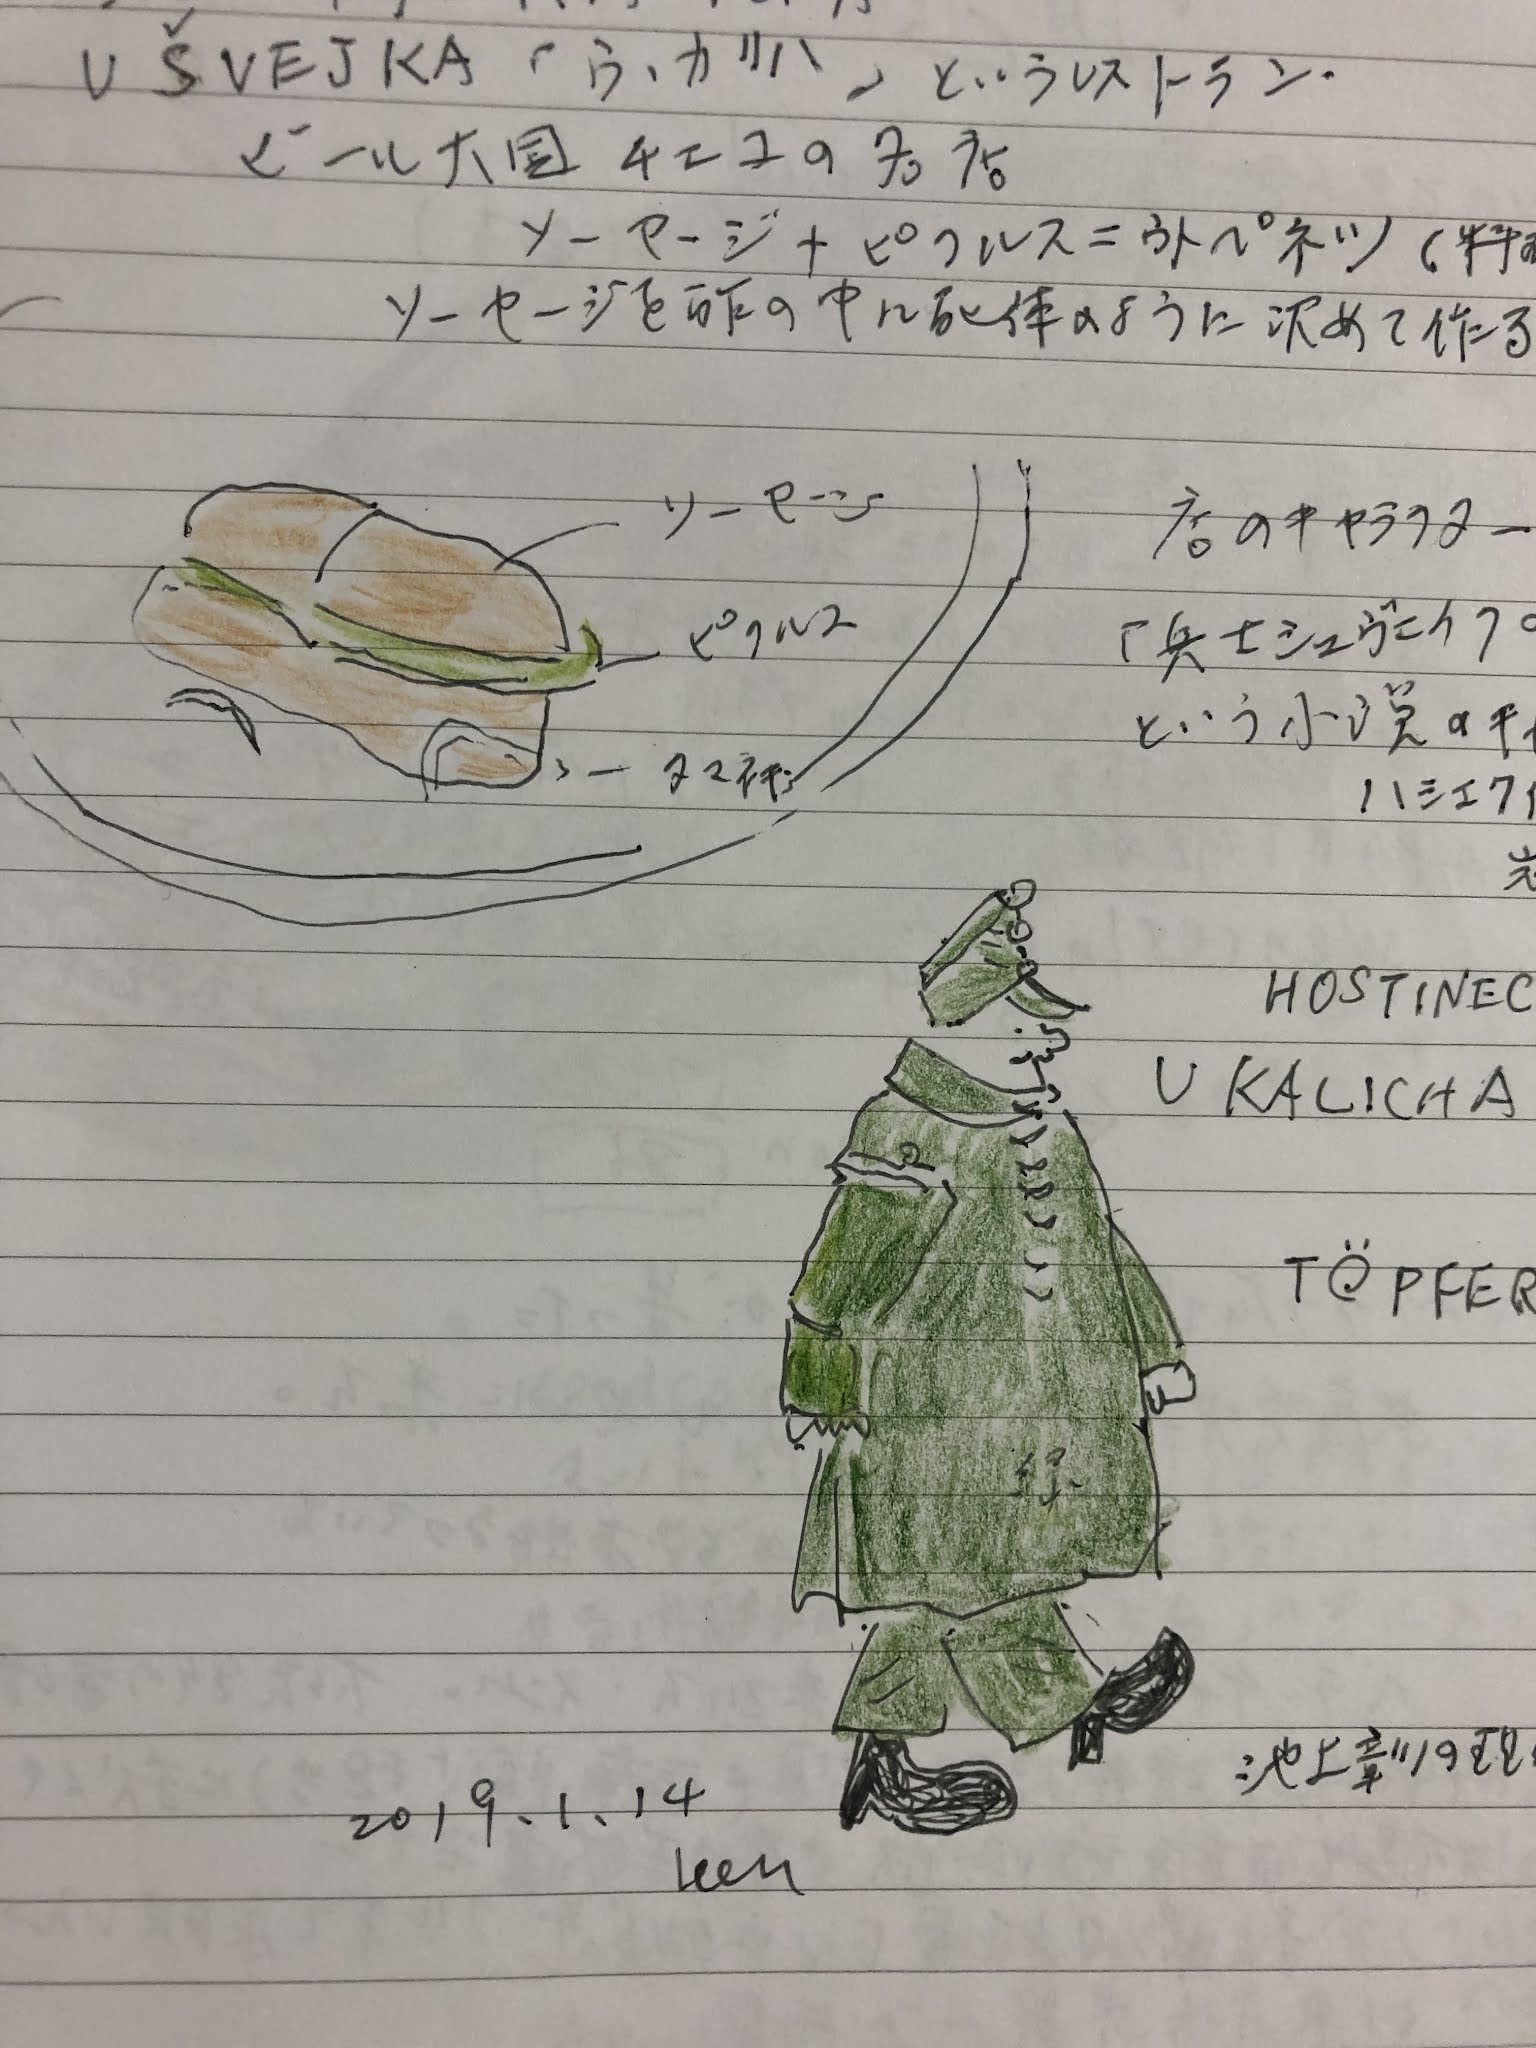 U ŠVEJKA 「ウ・カリハ」というレストラン.
ビール大国チェコの名店
ソーセージ+ピクルス=ウトペネツ (料
ソーセージを酢の中に死体のように沈めて作る
ソーセージ
ピクルス
タマネギ
店のキャラクター
「兵士シュヴェイクの
という小説の
ハシェク
HOSTINEC
U KALICHA
TÖPFER
緑
池上彰の理
2019.1.14
ken